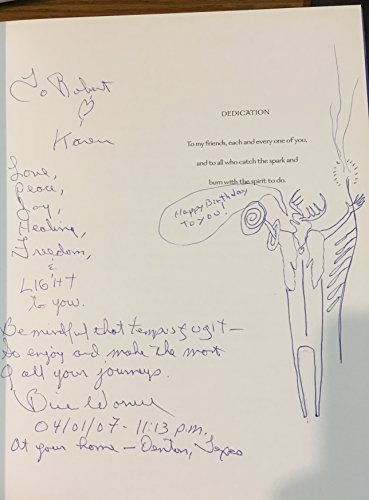 To Robert
&
Karen
Love,
Peace,
Joy,
Healing,
Freedom,
&
LIGHT
to you.
Be mindful that tempus fugit —
so enjoy and make the most
of all your journeys.
04/01/07 - 11:13 p.m.
At your home — Denton, Texas
DEDICATION
To my friends, each and every one of you,
and to all who catch the spark and
burn with the spirit to do.
Happy Birthday
TO YOU!